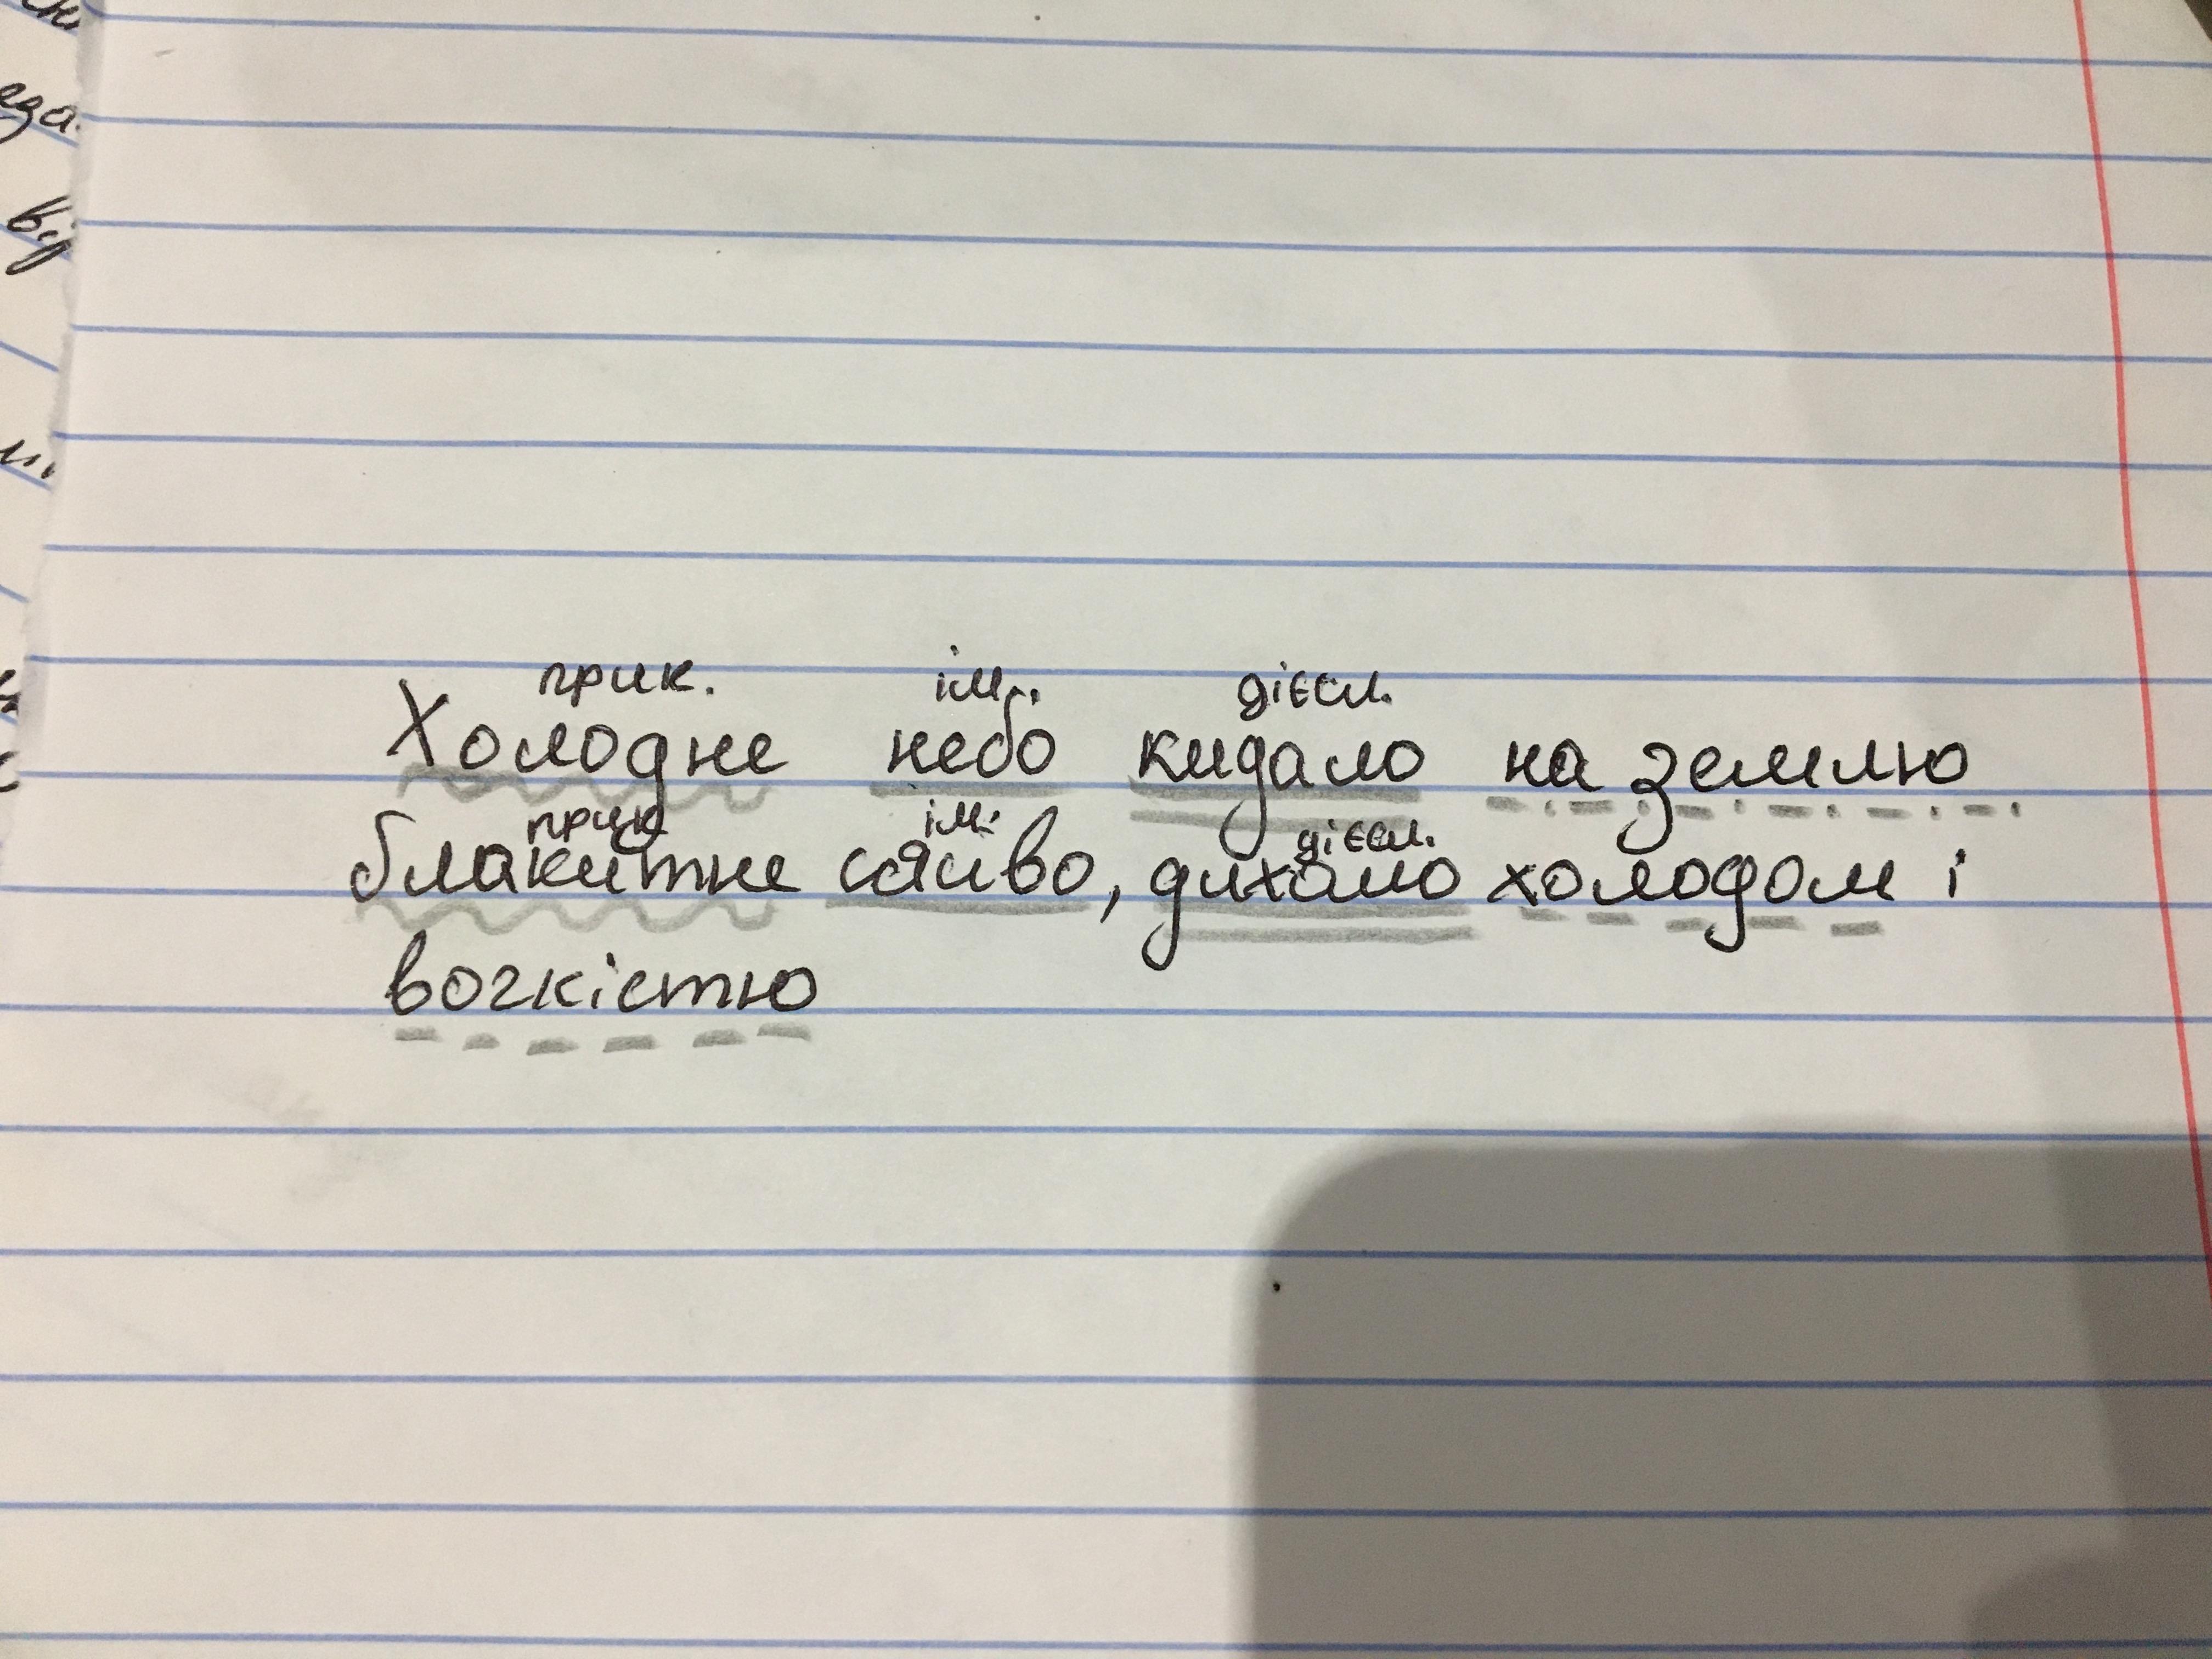 прик. ім. дієсл.
Холодне небо кидало на землю
прик ім. дієсл.
блакитне сяйво, дихало холодом і
вогкістю